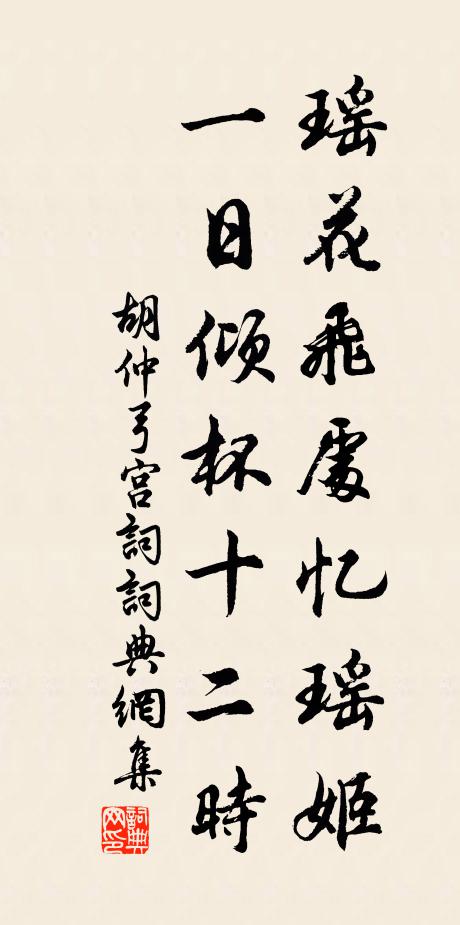 瑶花飛處忆瑶姬
一日倾杯十二時
胡仲弓宫詞詞典網集
詞典网印